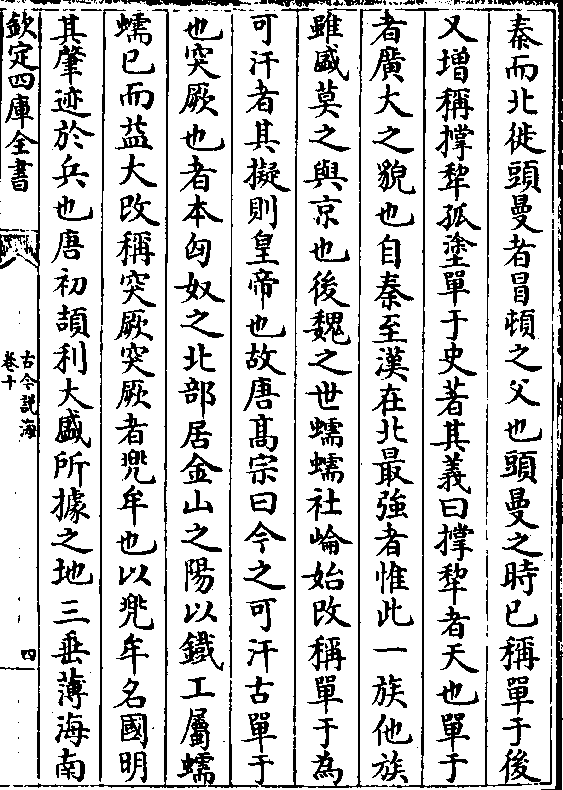 秦而北徙頭曼者冒頓之父也頭曼之時已稱單于後
又增稱撑犂孤塗單于史著其義曰撑犂者天也單于
者廣大之貌也自秦至漢在北最強者惟此一族他族
雖盛莫之與京也後魏之世蠕蠕社崘始改稱單于為
可汗者其擬則皇帝也故唐髙宗曰今之可汗古單于
也突厥也者本匈奴之北部居金山之陽以鐡工屬蠕
蠕已而益大改稱突厥突厥者兠牟也以兠牟名國明
其肇迹於兵也唐初頡利大盛所據之地三垂薄海南
欽定四庫全書
古今説海
卷十
四